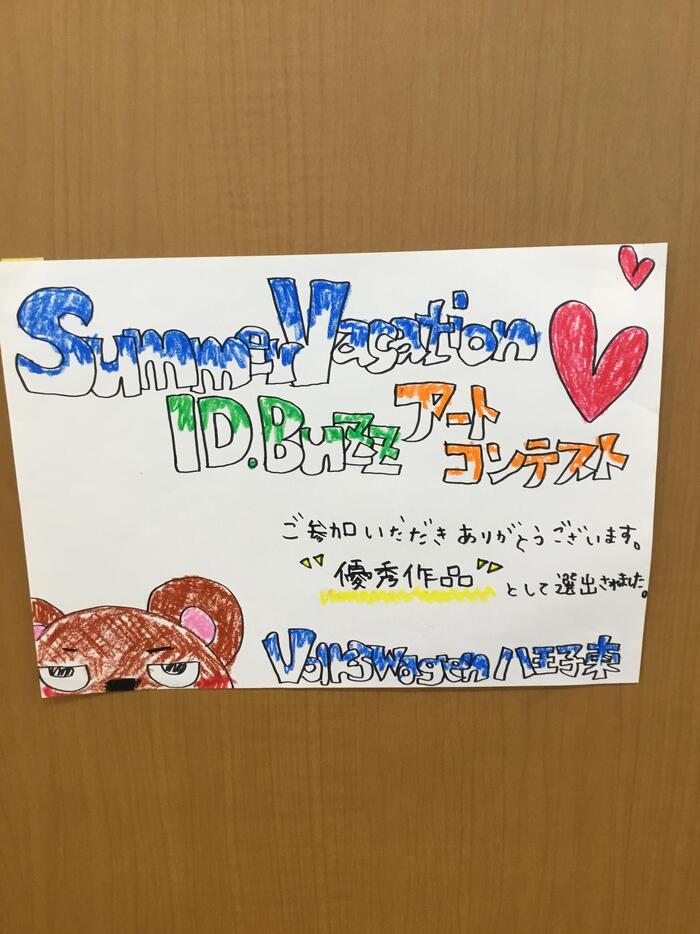 Summer Vacation
ID.Buzz アート
コンテスト
ご参加いただきありがとうございます。
"優秀作品" として選出されました。
Volkswagen 八王子東